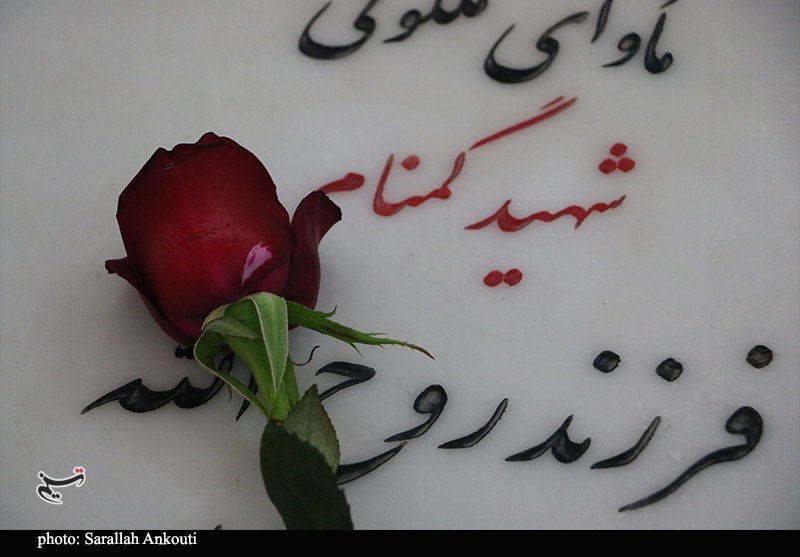 مأوای ملکوتی
شهید گمنام
فرزند روح
تسنیم
photo: Sarallah Ankouti